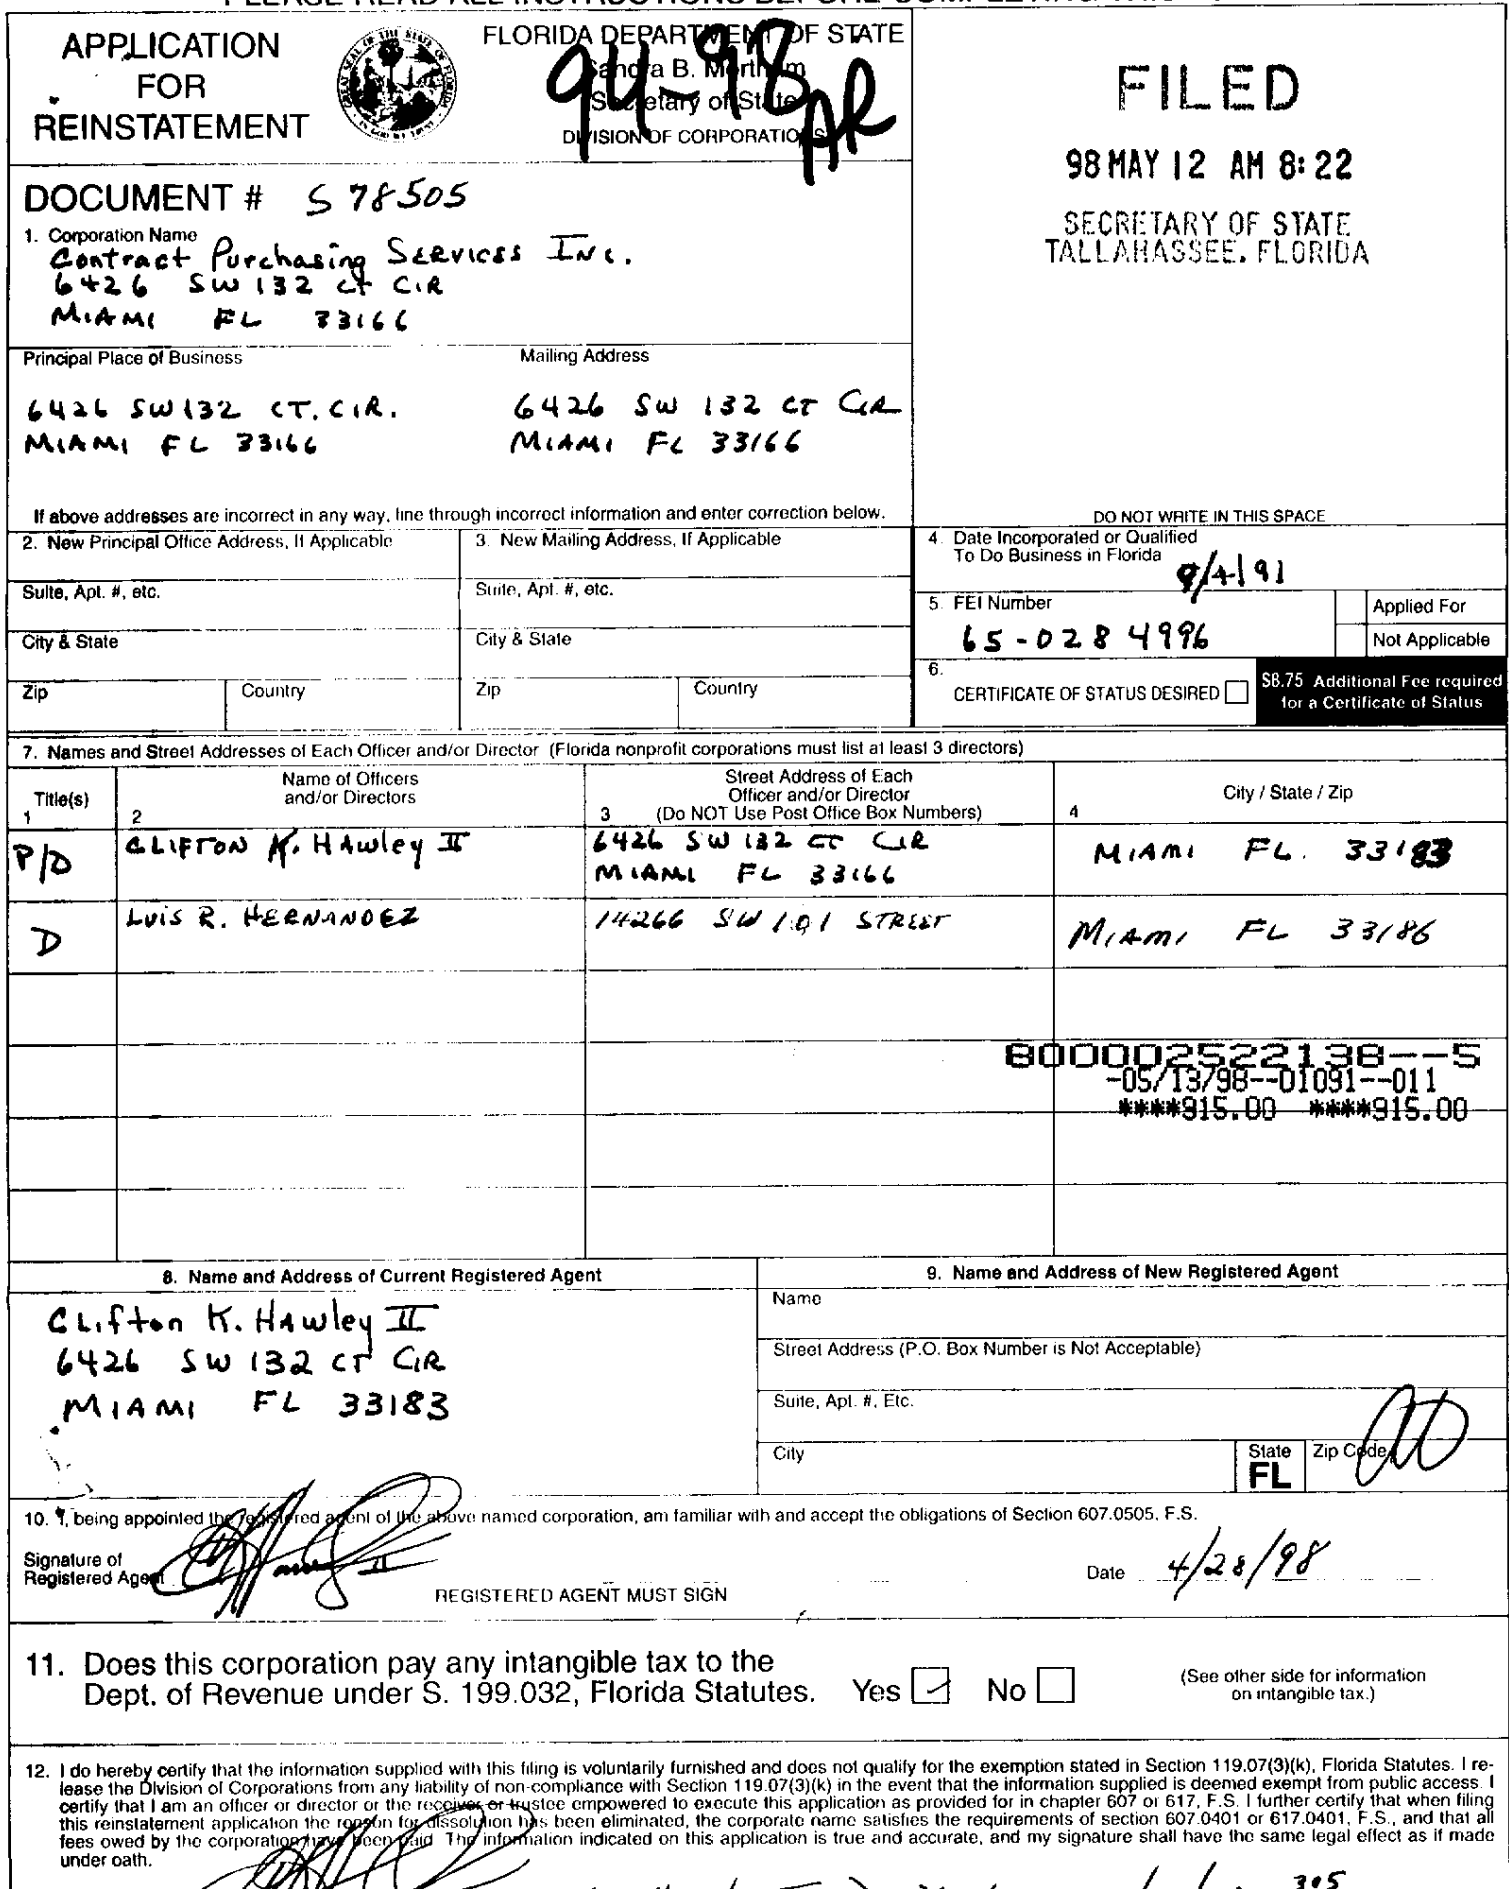 PLEASE READ ALL INSTRUCTIONS BEFORE COMPLETING THIS
APPLICATION
FOR
REINSTATEMENT
FLORIDA DEPARTMENT OF STATE
Sandra B. Mortham
Secretary of State
DIVISION OF CORPORATIONS
94-98
AR
FILED
98 MAY 12 AM 8:22
SECRETARY OF STATE
TALLAHASSEE, FLORIDA
DOCUMENT # S 78505
1. Corporation Name
Contract Purchasing Services Inc.
6426 SW 132 CT CIR
MIAMI FL 33166
Principal Place of Business
6426 SW 132 CT. CIR.
MIAMI FL 33166
Mailing Address
6426 SW 132 CT CIR
MIAMI FL 33166
If above addresses are incorrect in any way, line through incorrect information and enter correction below.
DO NOT WRITE IN THIS SPACE
2. New Principal Office Address, If Applicable
Suite, Apt. #, etc.
City & State
Zip Country
3. New Mailing Address, If Applicable
Suite, Apt. #, etc.
City & State
Zip Country
4. Date Incorporated or Qualified
To Do Business in Florida
9/4/91
5. FEI Number
65-0284996
Applied For
Not Applicable
6.
CERTIFICATE OF STATUS DESIRED
$8.75 Additional Fee required
for a Certificate of Status
7. Names and Street Addresses of Each Officer and/or Director (Florida nonprofit corporations must list at least 3 directors)
Title(s)
1
Name of Officers
and/or Directors
2
Street Address of Each
Officer and/or Director
3 (Do NOT Use Post Office Box Numbers)
City / State / Zip
4
P/D
CLIFTON K. HAwley II
6426 SW 132 CT CIR
MIAMI FL 33166
MIAMI FL. 33183
D
LUIS R. HERNANDEZ
14266 SW 101 STREET
MIAMI FL 33186
800002522138--5
-05/13/98--01091--011
****915.00 ****915.00
8. Name and Address of Current Registered Agent
Clifton K. HAwley II
6426 SW 132 CT CIR
MIAMI FL 33183
9. Name and Address of New Registered Agent
Name
Street Address (P.O. Box Number is Not Acceptable)
Suite, Apt. #, Etc.
City
State
FL
Zip Code
10. I, being appointed the registered agent of the above named corporation, am familiar with and accept the obligations of Section 607.0505, F.S.
Signature of
Registered Agent
REGISTERED AGENT MUST SIGN
Date 4/28/98
11. Does this corporation pay any intangible tax to the
Dept. of Revenue under S. 199.032, Florida Statutes. Yes No
(See other side for information
on intangible tax.)
12. I do hereby certify that the information supplied with this filing is voluntarily furnished and does not qualify for the exemption stated in Section 119.07(3)(k), Florida Statutes. I re-
lease the Division of Corporations from any liability of non-compliance with Section 119.07(3)(k) in the event that the information supplied is deemed exempt from public access. I
certify that I am an officer or director or the receiver or trustee empowered to execute this application as provided for in chapter 607 or 617, F.S. I further certify that when filing
this reinstatement application the reason for dissolution has been eliminated, the corporate name satisfies the requirements of section 607.0401 or 617.0401, F.S., and that all
fees owed by the corporation have been paid The information indicated on this application is true and accurate, and my signature shall have the same legal effect as if made
under oath.
305